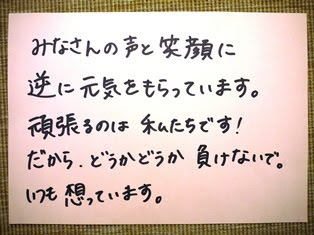 みなさんの声と笑顔に
逆に元気をもらっています。
頑張るのは私たちです!
だから、どうかどうか負けないで。
いつも想っています。